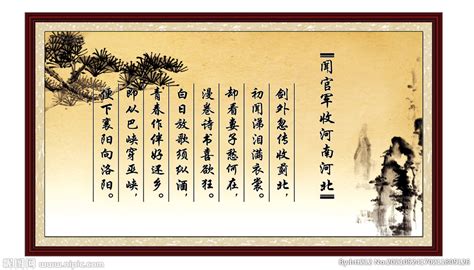 闻官军收河南河北
剑外忽传收蓟北,
初闻涕泪满衣裳。
却看妻子愁何在,
漫卷诗书喜欲狂。
白日放歌须纵酒
青春作伴好还乡。
即从巴峡穿巫峡,
便下襄阳向洛阳。
昵图网 www.nipic.com